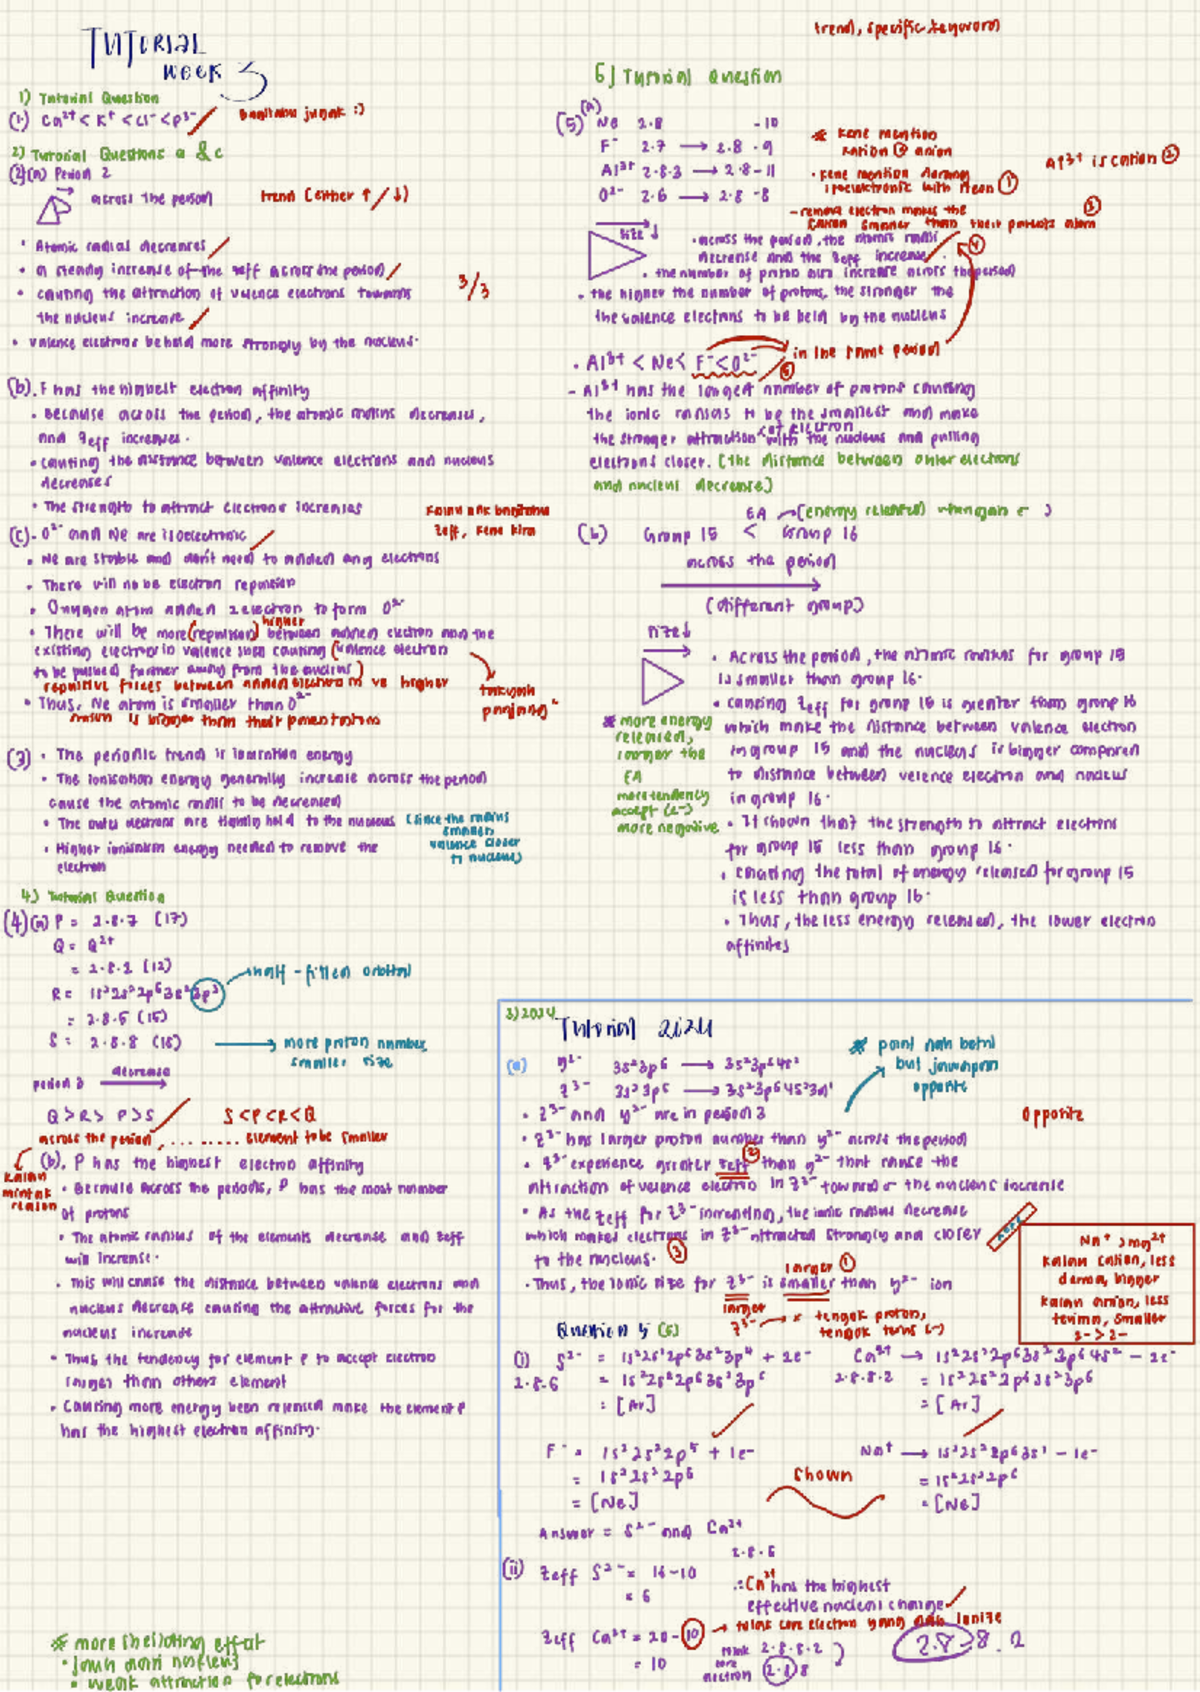 TUTORIAL
WEEK 3
1) Tutorial Question
(1) Ca²⁺ < K⁺ < Cl⁻ < P³⁻
bagitahu jugak :)
2) Tutorial Questions a & c
(2)(a) Period 2
across the period
trend (either ↑ / ↓)
• Atomic radial decreases
• a steady increase of the zeff across the period
• causing the attraction of valence electrons towards
the nucleus increase
3/3
• valence electrons be held more strongly by the nucleus.
(b). F has the highest electron affinity
• Because across the period, the atomic radius decreases,
and Zeff increases.
• causing the distance between valence electrons and nucleus
decreases
• The strength to attract electrons increases
kalau nak bagitahu
Zeff, kene kira
(c). O²⁻ and Ne are isoelectronic
• Ne are stable and don't need to added any electrons
• There will no be electron repulsion
• Oxygen atom added 2 electron to form O²⁻
higher
• There will be more (repulsion) between added electron and the
existing electron in valence shell causing (valence electron
to be pushed further away from the nucleus)
repulsive forces between added electron higher
• Thus, Ne atom is smaller than O²⁻
anion is bigger than their parent atom
panjang
(3) • The periodic trend is ionisation energy
• The ionisation energy generally increase across the period
cause the atomic radii to be decreased
• The outer electrons are tightly held to the nucleus (since the radius
smaller
valence closer
to nucleus)
• Higher ionisation energy needed to remove the
electron
4) Tutorial Question
(4)(a) P = 2.8.7 (17)
Q = Q²⁺
= 2.8.2 (12)
R = 1s²2s²2p⁶3s²3p³
half-filled orbital
= 2.8.5 (15)
S = 2.8.8 (18)
→ more proton number,
smaller size
period 3 decrease →
Q > R > P > S
S < P < R < Q
across the period, ......... element to be smaller
kalau
mintak
reason
(b). P has the highest electron affinity
• Because across the periods, P has the most number
of protons
• The atomic radius of the elements decrease and Zeff
will increase.
• This will cause the distance between valence electrons and
nucleus decrease causing the attractive forces for the
nucleus increase
• Thus the tendency for element P to accept electron
larger than others element
• Causing more energy been released make the element P
has the highest electron affinity.
* more shielding effect
• jauh dari nucleus
• weak attraction for electrons
trend, specific keyword
5) Tutorial Question
(5) (a) Ne 2.8 -10
F⁻ 2.7 → 2.8 -9
Al³⁺ 2.8.3 → 2.8 -11
O²⁻ 2.6 → 2.8 -8
* kene mention
kation @ anion
Al³⁺ is cation ②
• kene mention
isoelektronic with Neon ①
- remove electron makes the ③
cation smaller than their parents atom
size ↓
• across the period, the atomic radii
decrease and the zeff increase ④
• the number of proton also increase across the period
• the higher the number of protons, the stronger the
the valence electrons to be held by the nucleus
• Al³⁺ < Ne < F⁻ < O²⁻
in the same period
⑤
- Al³⁺ has the longest number of protons causing
the ionic radius to be the smallest and make
of electron
the stronger attraction with the nucleus and pulling
electrons closer. (the distance between outer electrons
and nucleus decrease)
EA → (energy released e⁻)
(b) Group 15 < Group 16
across the period
(different group)
size ↓
• Across the period, the atomic radius for group 15
is smaller than group 16.
• causing Zeff for group 15 is greater than group 16
which make the distance between valence electron
in group 15 and the nucleus is bigger compared
to distance between valence electron and nucleus
in group 16.
* more energy
released,
larger the
EA
more tendency
accept (e⁻)
more negative
• It shown that the strength to attract electrons
for group 15 less than group 16.
• Causing the total of energy released for group 15
is less than group 16.
• Thus, the less energy released, the lower electron
affinities
3) 2024
Tutorial 23/24
(a) y²⁻ 3s²3p⁶ → 3s²3p⁶4s²
z³⁻ 3s²3p⁶ → 3s²3p⁶4s²3d¹
* point dah betul
but jawapan
opposite
• z³⁻ and y²⁻ are in period 3
Opposite
• z³⁻ has larger proton number than y²⁻ across the period
• z³⁻ experience greater zeff ② than y²⁻ that cause the
attraction of valence electron in z³⁻ toward the nucleus increase
• As the zeff for z³⁻ increasing, the ionic radius decrease
which makes electrons in z³⁻ attracted strongly and closer
to the nucleus. ③
larger ①
• Thus, the ionic size for z³⁻ is smaller than y²⁻ ion
larger
z³⁻ → * tengok proton,
tengok terus (-)
Na⁺ > Mg²⁺
kalau cation, less
derma, bigger
kalau anion, less
terima, smaller
3- > 2-
Question 5 (b)
(i) S²⁻ = 1s²2s²2p⁶3s²3p⁴ + 2e⁻
2.8.6 = 1s²2s²2p⁶3s²3p⁶
= [Ar]
Ca²⁺ → 1s²2s²2p⁶3s²3p⁶4s² - 2e⁻
2.8.8.2 = 1s²2s²2p⁶3s²3p⁶
= [Ar]
F⁻ = 1s²2s²2p⁵ + 1e⁻
= 1s²2s²2p⁶
= [Ne]
Na⁺ → 1s²2s²2p⁶3s¹ - 1e⁻
= 1s²2s²2p⁶
= [Ne]
Shown
Answer = S²⁻ and Ca²⁺
2.8.6
(ii) Zeff S²⁻ = 16-10
= 6
∴ Ca²⁺ has the highest
effective nuclear charge
Zeff Ca²⁺ = 20-10 → tolak core electron yang dah ionize
= 10
tolak
core
electron
2.8.8.2
2.8 8
2.8.8.2